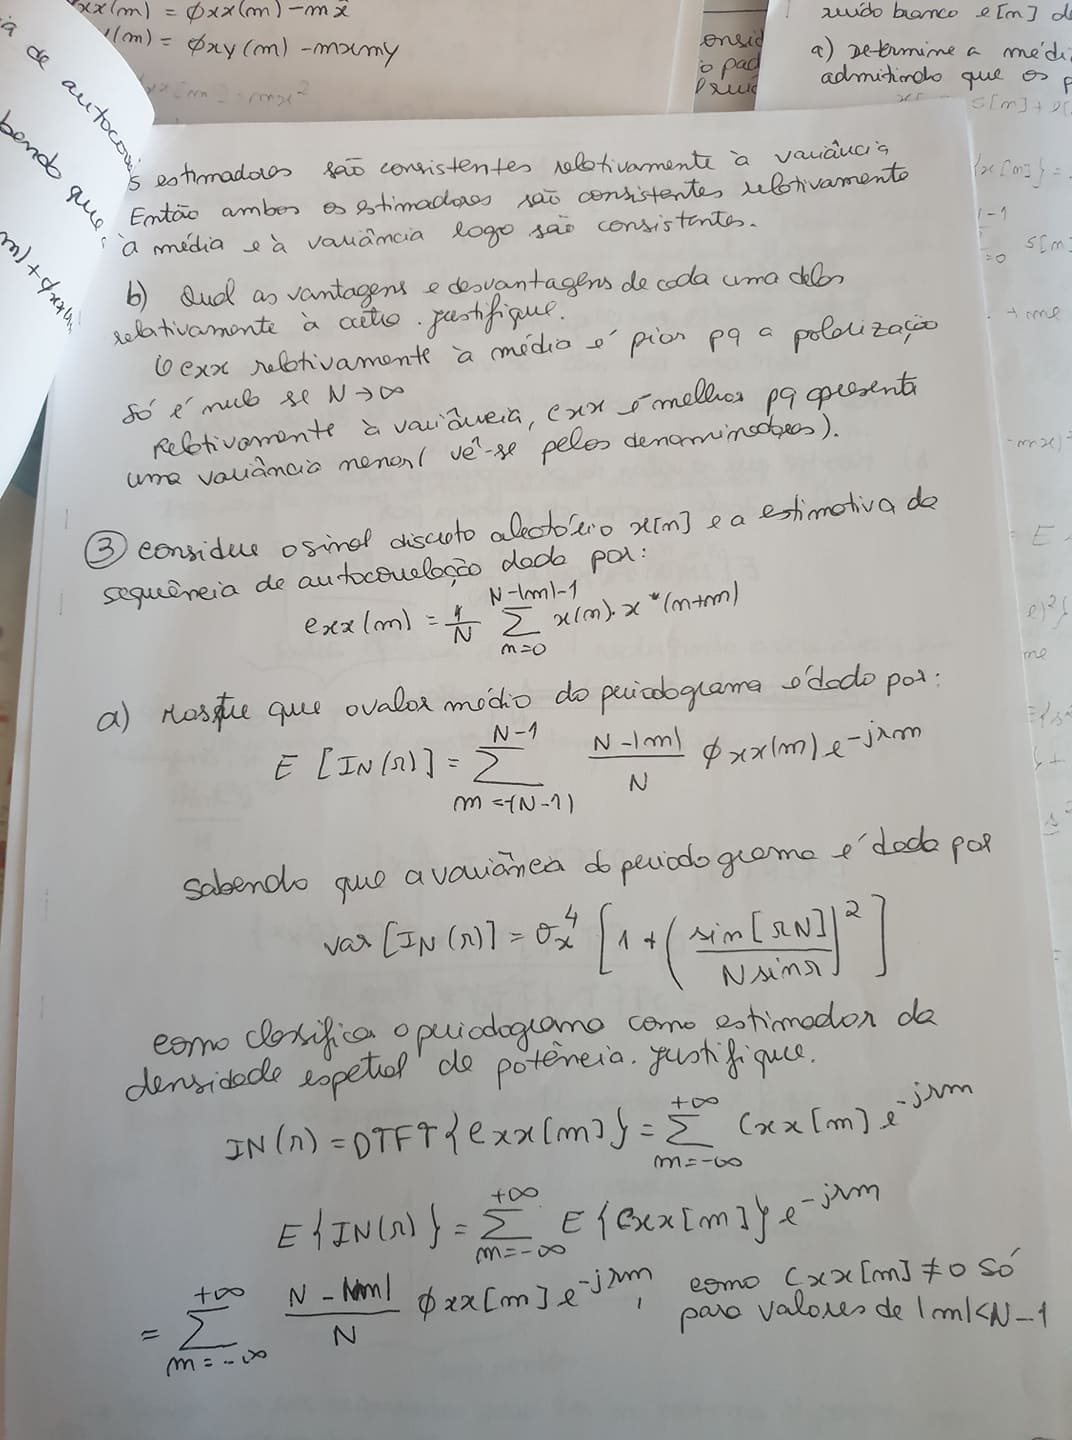 xx(m) = φxx(m) - mx̄
(m) = φxy(m) - mxmy
a de autocov
bendo que,
m) + φxx(
ruído branco e[m] d
a) Determine a médi
admitindo que os p
s[m] + e(
onsid
o pad
s estimadores são consistentes relativamente à variância
Então ambos os estimadores são consistentes relativamente
à média e à variância logo são consistentes.
b) Qual as vantagens e desvantagens de cada uma delas
relativamente à outra. Justifique.
O cxx relativamente à média é pior pq a polarização
só é nula se N→∞
Relativamente à variância, cxx é melhor pq apresenta
uma variância menor (vê-se pelos denominadores).
③ Considere o sinal discreto aleatório x[n] e a estimativa da
sequência de autocorrelação dada por:
cxx(m) = 1/N ∑_{m=0}^{N-|m|-1} x(m).x*(n+m)
a) Mostre que o valor médio do periodograma é dado por:
E [IN(Ω)] = ∑_{m=-(N-1)}^{N-1} (N-|m|)/N φxx(m) e^{-jΩm}
Sabendo que a variância do periodograma é dada por
var [IN(Ω)] = σx^4 [1 + (sin[ΩN]/(N sinΩ))^2]
como classifica o periodograma como estimador da
densidade espetral de potência. Justifique.
IN(Ω) = DTFT{cxx[m]} = ∑_{m=-∞}^{+∞} Cxx[m] e^{-jΩm}
E{IN(Ω)} = ∑_{m=-∞}^{+∞} E{Cxx[m]} e^{-jΩm}
= ∑_{m=-∞}^{+∞} (N-|m|)/N φxx[m] e^{-jΩm}, como Cxx[m] ≠ 0 só
para valores de |m|<N-1